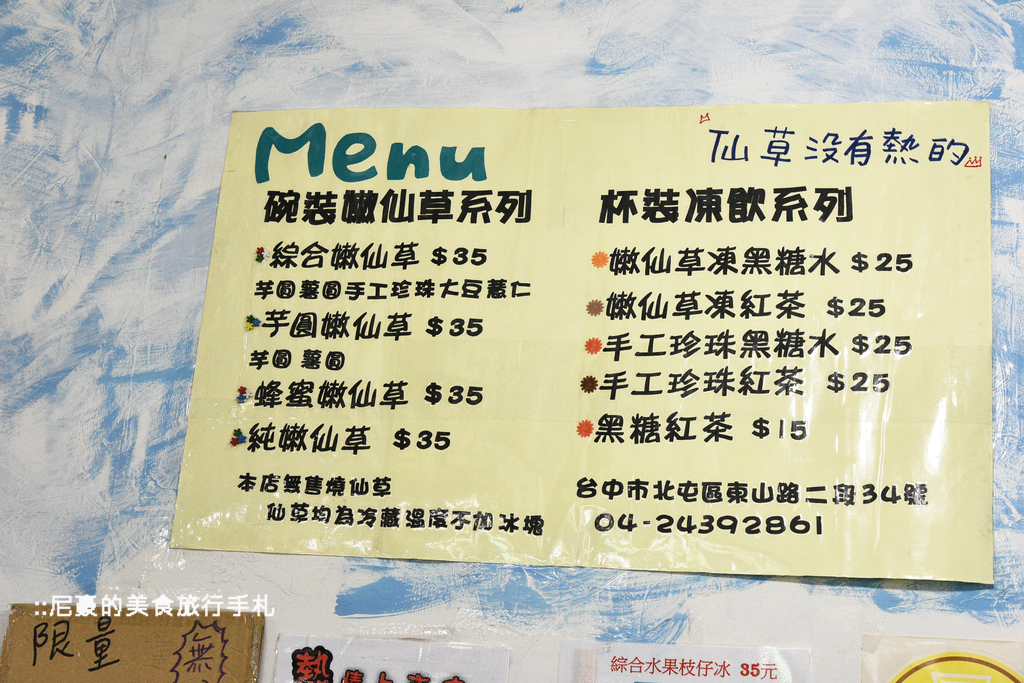 Menu
仙草没有熱的
碗裝嫩仙草系列
綜合嫩仙草 $35
芋圓薯圓手工珍珠大豆薏仁
芋圓嫩仙草 $35
芋圓 薯圓
蜂蜜嫩仙草 $35
純嫩仙草 $35
本店無售燒仙草
仙草均為冷藏溫度不加冰塊
杯裝凍飲系列
嫩仙草凍黑糖水 $25
嫩仙草凍紅茶 $25
手工珍珠黑糖水 $25
手工珍珠紅茶 $25
黑糖紅茶 $15
台中市北屯區東山路二段34號
04-24392861
::尼豪的美食旅行手札
限量
無
熱
綜合水果枝仔冰 35元